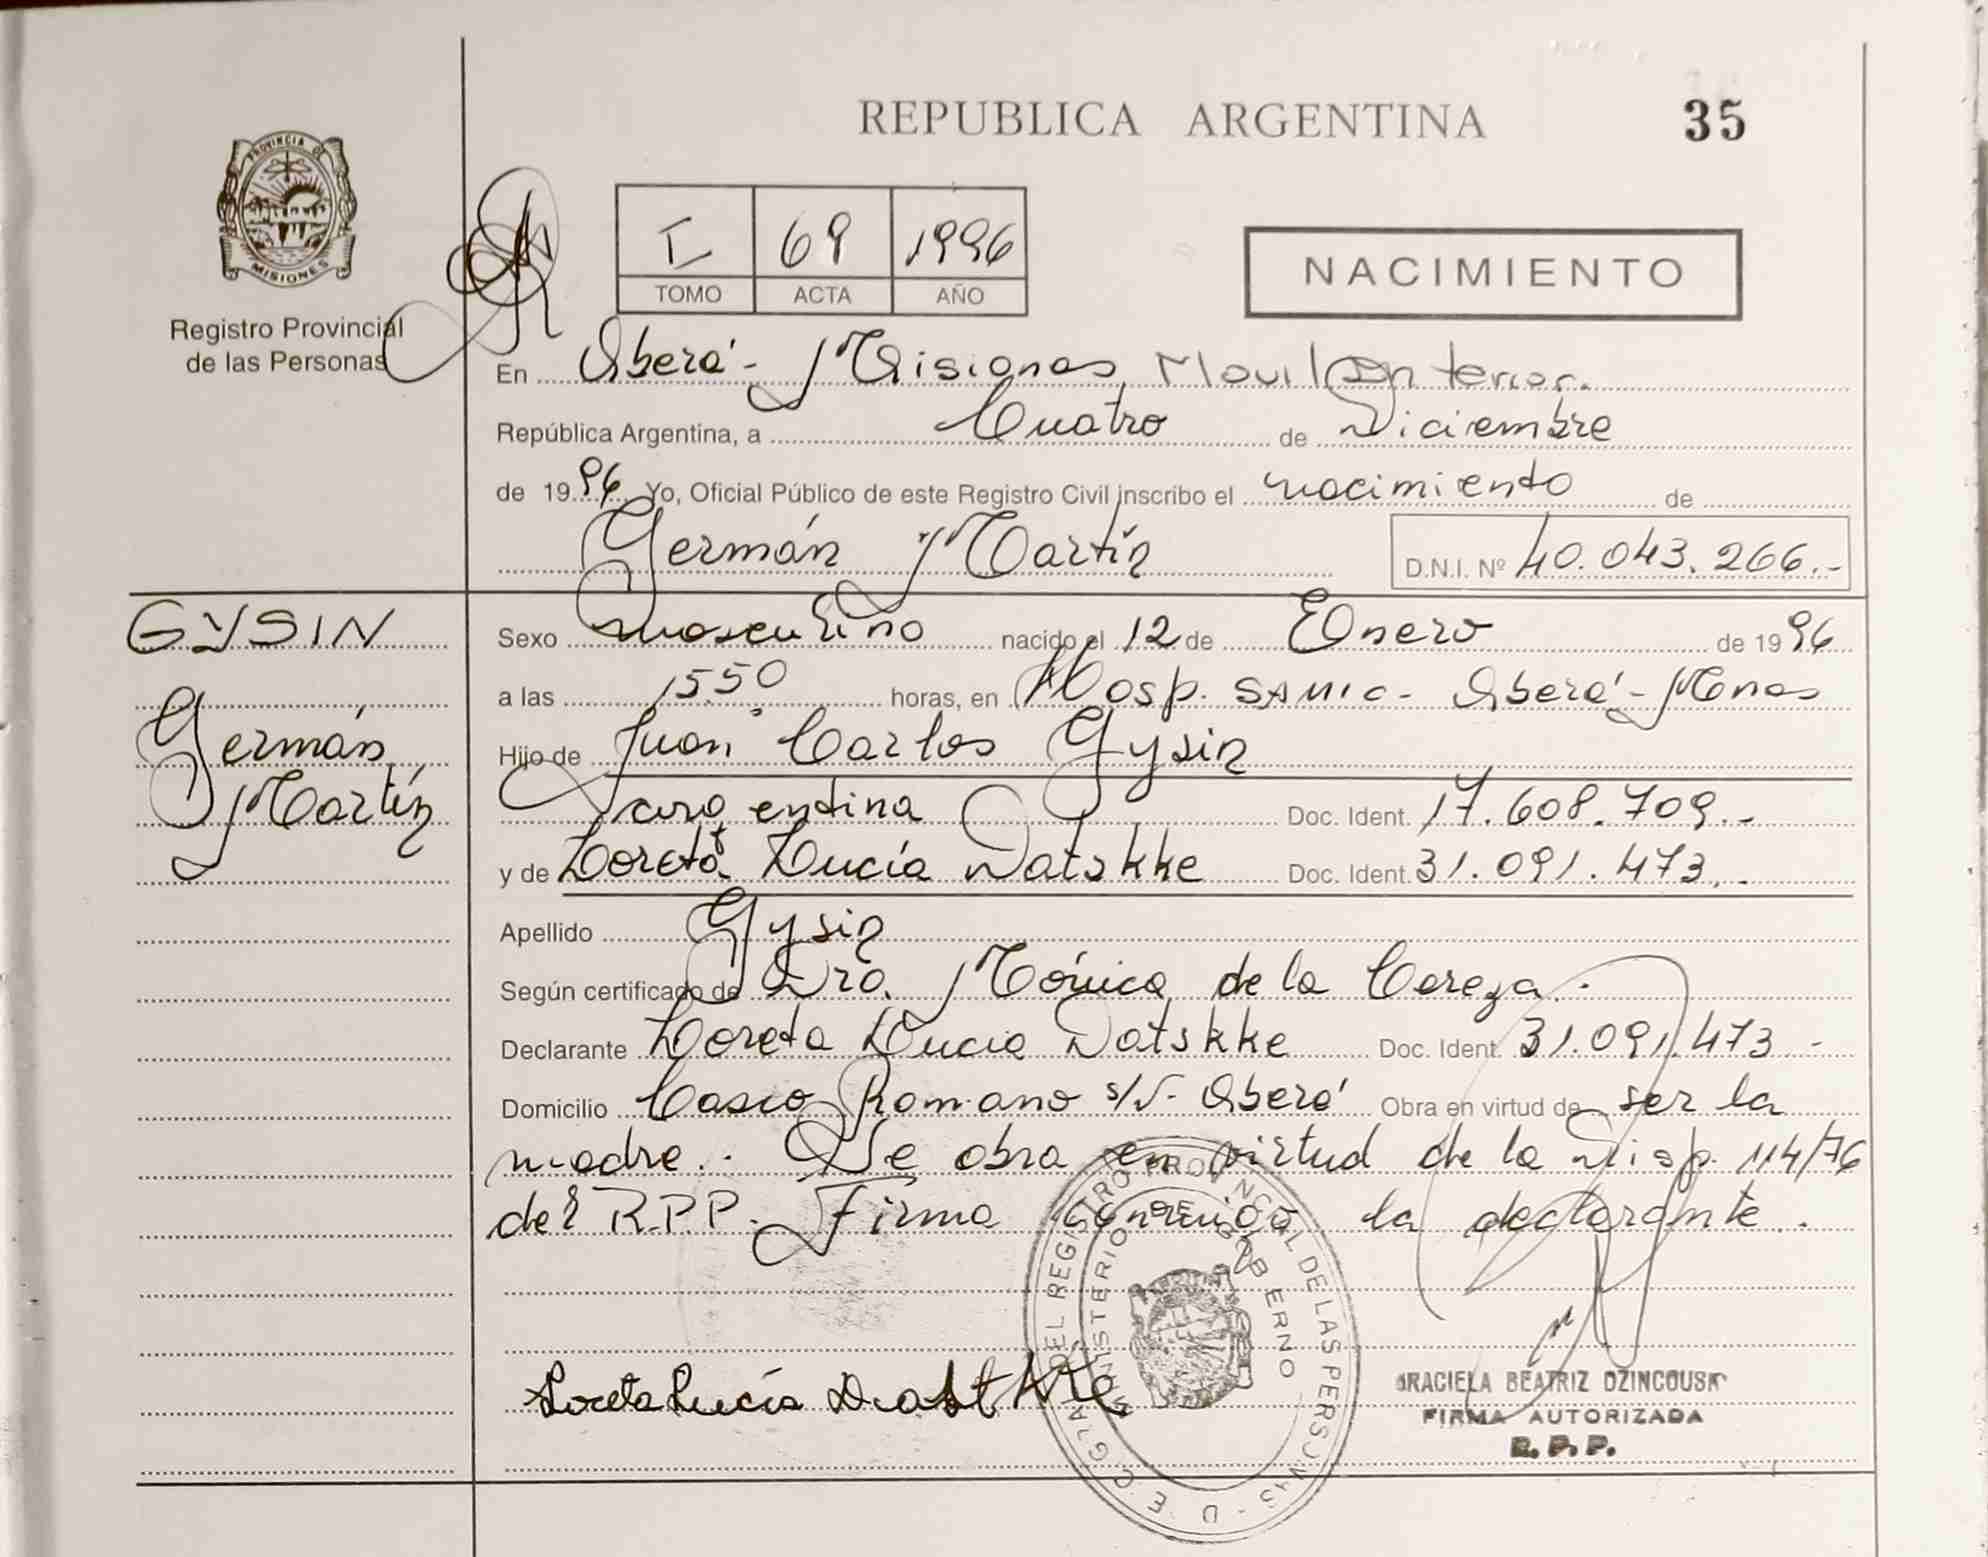 REPUBLICA ARGENTINA
35
PROVINCIA DE
MISIONES
Registro Provincial
de las Personas
I 69 1996
TOMO ACTA AÑO
NACIMIENTO
En Oberá - Misiones, Movil Interior.
República Argentina, a Cuatro de Diciembre
de 1996 Yo, Oficial Público de este Registro Civil inscribo el nacimiento de
Germán Martín D.N.I. Nº 40.043.266.-
GYSIN
Germán
Martín
Sexo masculino nacido el 12 de Enero de 1996
a las 15.50 horas, en Hosp. SAMIC - Oberá - Mnes
Hijo de Juan Carlos Gysin
argentina Doc. Ident. 17.608.709.-
y de Loreta Lucía Datskke Doc. Ident. 31.091.473.-
Apellido Gysin
Según certificado de Dra. Mónica de la
Declarante Loreta Lucia Datskke Doc. Ident. 31.091.473-
Domicilio Casco Romano s/N- Oberá Obra en virtud de ser la
madre.- Se obra en virtud de la Disp. 114/76
del R.P.P. Firma conmigo la declarante.
Loreta Lucía
DEL REGISTRO PROVINCIAL DE LAS PERSONAS
MINISTERIO DE GOBIERNO
GRACIELA BEATRIZ DZINCOUSKI
FIRMA AUTORIZADA
R. P. P.